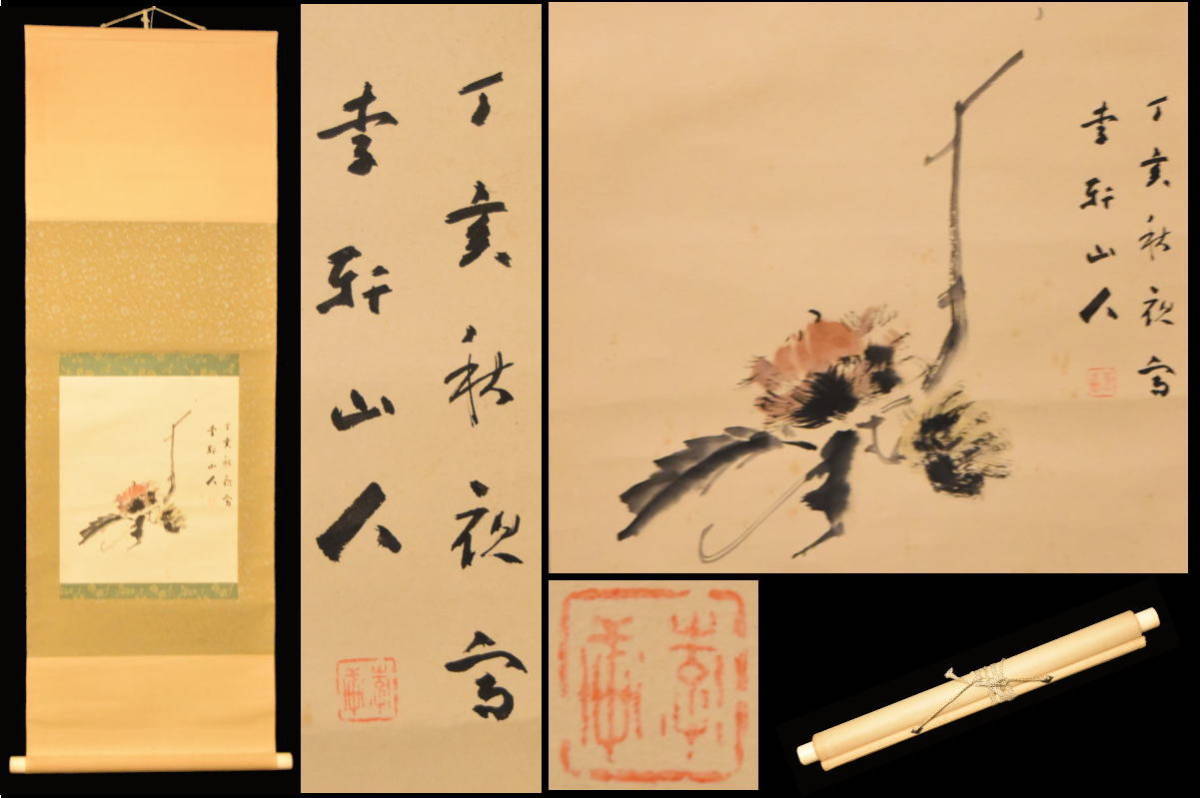 丁亥秋夜写
李軒山人
丁亥秋夜写
李軒山人